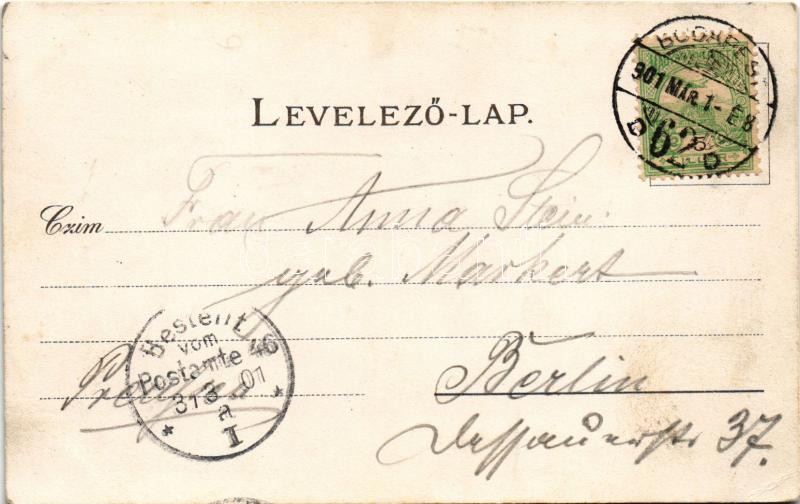 LEVELEZŐ-LAP.
BUDAPEST
901 MÁR. 1 - É 8
62
D D
Czim Frau Anna Stein.
geb. Markert
Berlin
Dessauerstr 37.
Preußen
Bestellt
vom
Postamte 46
31 3 01
a
* I *